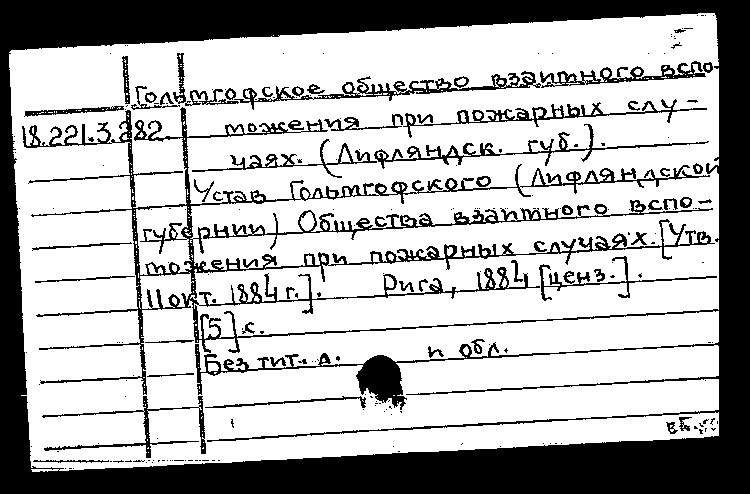 Гольмгофское общество взаимного вспо-
18.221.3.282. можения при пожарных слу-
чаях. (Лифляндск. губ.).
Устав Гольмгофского (Лифляндской
губернии) Общества взаимного вспо-
можения при пожарных случаях. [Утв.
11 окт. 1884 г.]. Рига, 1884 [ценз.].
[5] с.
Без тит. л. и обл.